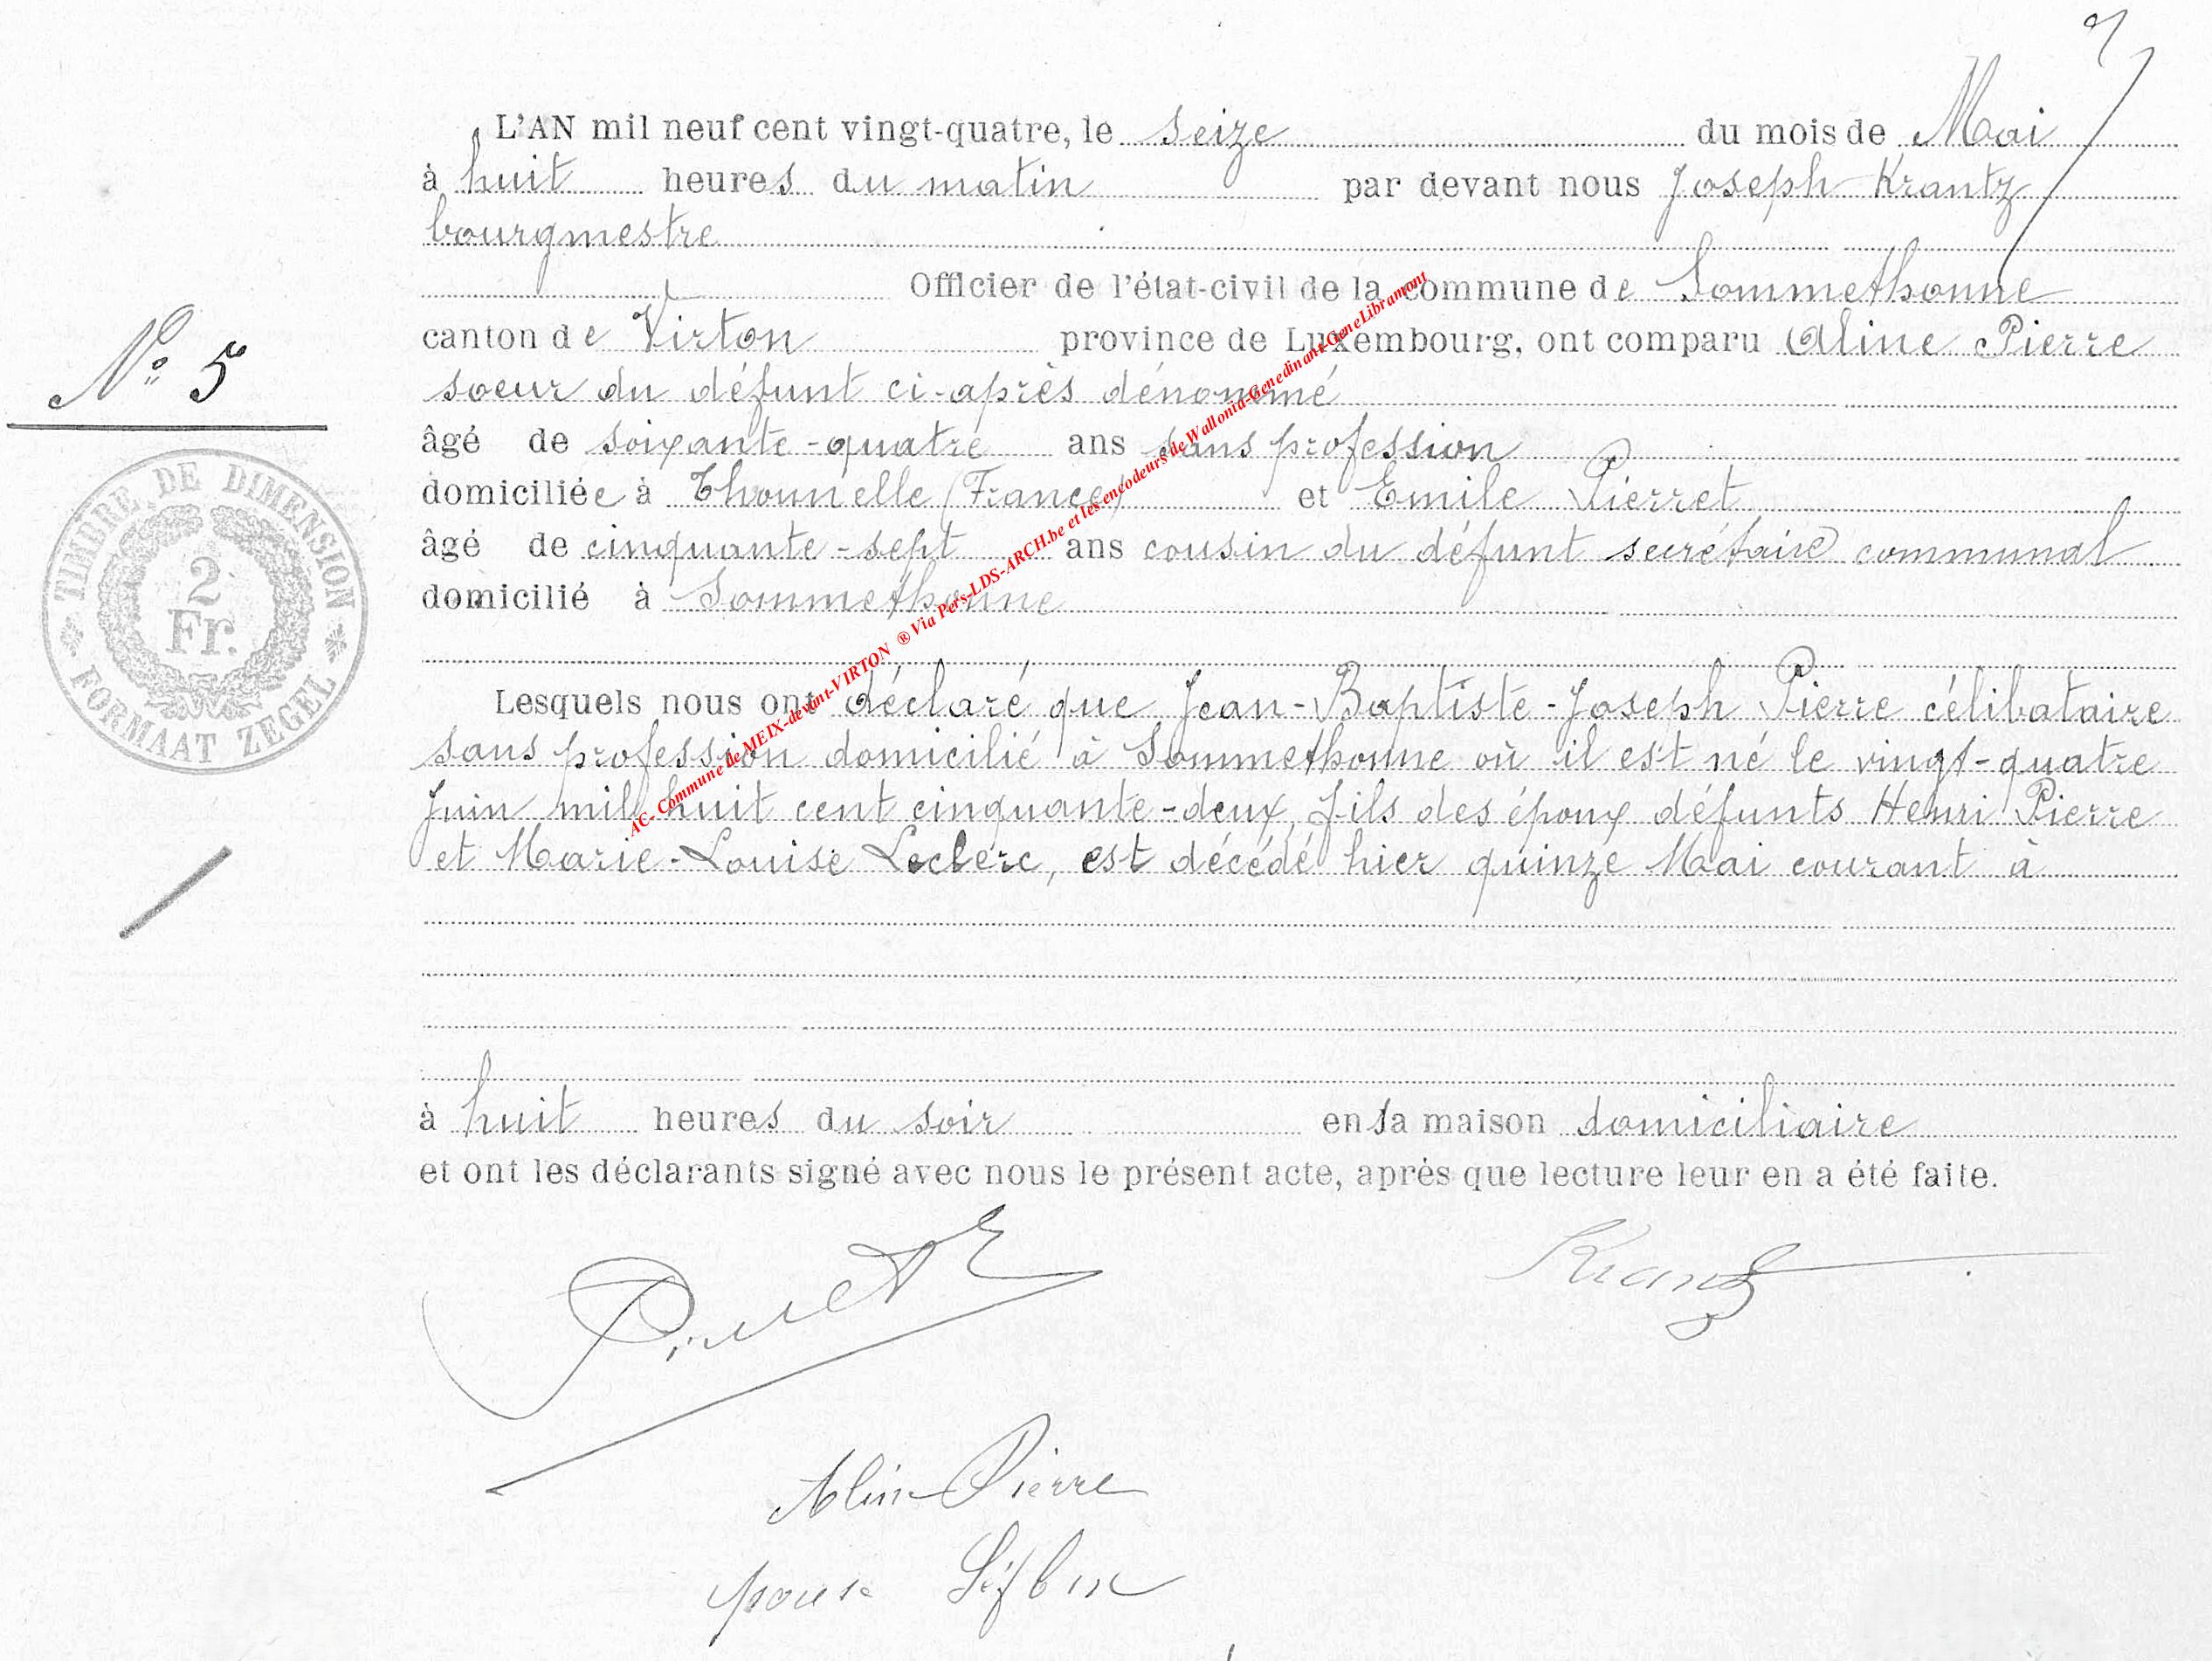 7
L'AN mil neuf cent vingt-quatre, le seize du mois de Mai
à huit heures du matin par devant nous Joseph Krantz
bourgmestre
Officier de l'état-civil de la commune de Sommethonne
canton de Virton province de Luxembourg, ont comparu Aline Pierre
soeur du défunt ci-après dénommé
âgé de soixante-quatre ans sans profession
domiciliée à Thonnelle (France) et Emile Pierret
âgé de cinquante-sept ans cousin du défunt secrétaire communal
domicilié à Sommethonne
Lesquels nous ont déclaré que Jean-Baptiste-Joseph Pierre célibataire
sans profession domicilié à Sommethonne où il est né le vingt-quatre
Juin mil huit cent cinquante-deux, fils des époux défunts Henri Pierre
et Marie-Louise Leclerc, est décédé hier quinze Mai courant à
à huit heures du soir en sa maison domiciliaire
et ont les déclarants signé avec nous le présent acte, après que lecture leur en a été faite.
Nº 5
TIMBRE DE DIMENSION
2
Fr.
FORMAAT ZEGEL
AC- Commune de MEIX-devant-VIRTON ® Via Pers-LDS-ARCH.be et les encodeurs de Wallonia-Genedinant-GeneLibramont
Pierret Krantz
Aline Pierre